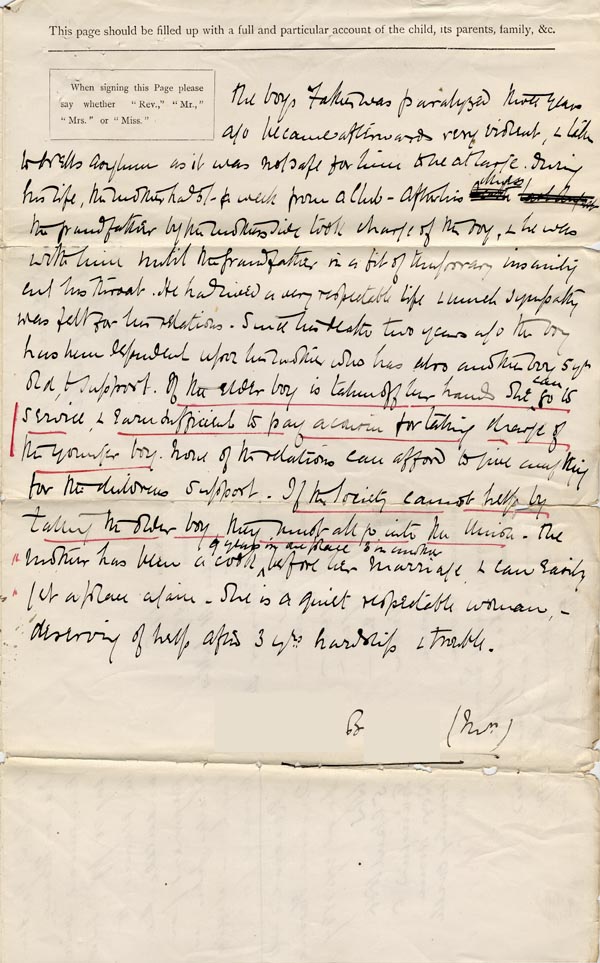 This page should be filled up with a full and particular account of the child, its parents, family, &c.
When signing this Page please
say whether "Rev.," "Mr.,"
"Mrs." or "Miss."
The boys Father was paralyzed three years
ago became afterwards very violent, & taken
to Wells Asylum as it was not safe for him to be at large. During
his life, the mother had a week from a Club - After his
the grandfather by the mothers side took charge of the boy, & he was
with him until the grandfather in a fit of temporary insanity
cut his throat. He had lived a very respectable life & much sympathy
was felt for his relations. Since his death two years ago the boy
has been dependent upon his mother who has also another boy 5 yrs
old, to support. If the elder boy is taken off her hands she can go to
service, & earn sufficient to pay a cousin for taking charge of
the younger boy. None of the relations can afford to give anything
for the childrens support. If the Society cannot help by
taking the older boy they must all go into the Union. The
mother has been a cook 9 years in one place 3 in another before her marriage & can easily
get a place again - She is a quiet respectable woman, -
deserving of help after 3 yrs hardship & trouble.
B (Mrs)